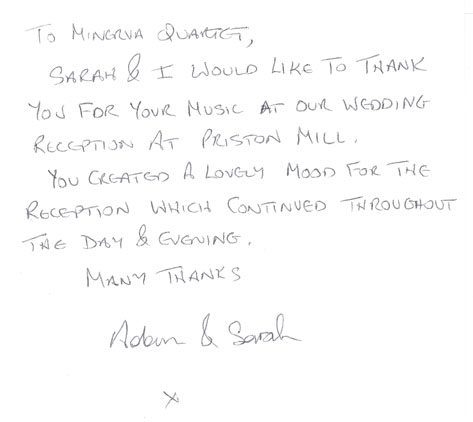 To Minerva Quartet,
Sarah & I would like to thank
you for your music at our wedding
reception at Priston Mill.
You created a lovely mood for the
reception which continued throughout
the day & evening.
Many thanks
Adam & Sarah
x